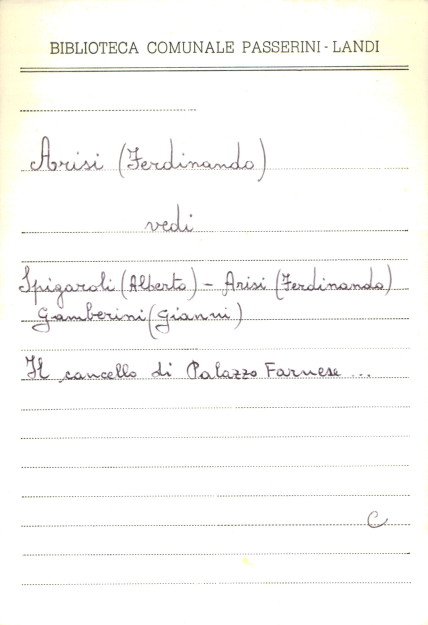 BIBLIOTECA COMUNALE PASSERINI - LANDI
Arisi (Ferdinando)
vedi
Spigaroli (Alberto) - Arisi (Ferdinando)
Gamberini (Gianni)
Il cancello di Palazzo Farnese ...
C